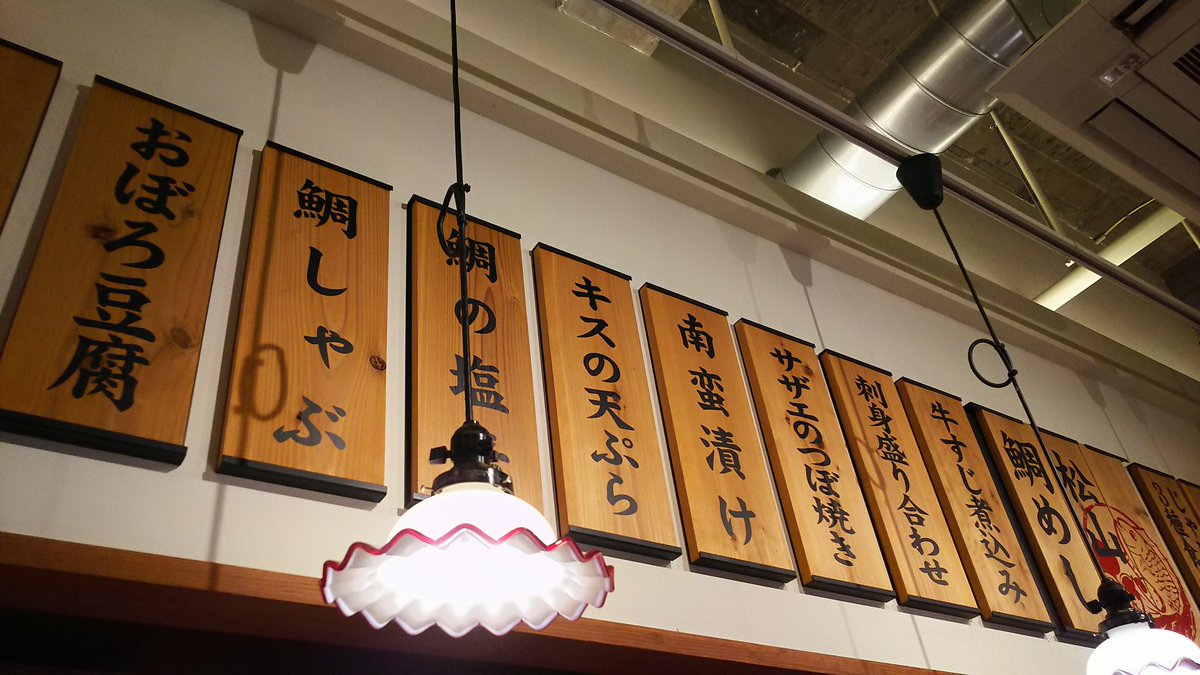 おぼろ豆腐
鯛しゃぶ
鯛の塩
キスの天ぷら
南蛮漬け
サザエのつぼ焼き
刺身盛り合わせ
牛すじ煮込み
鯛めし
松山